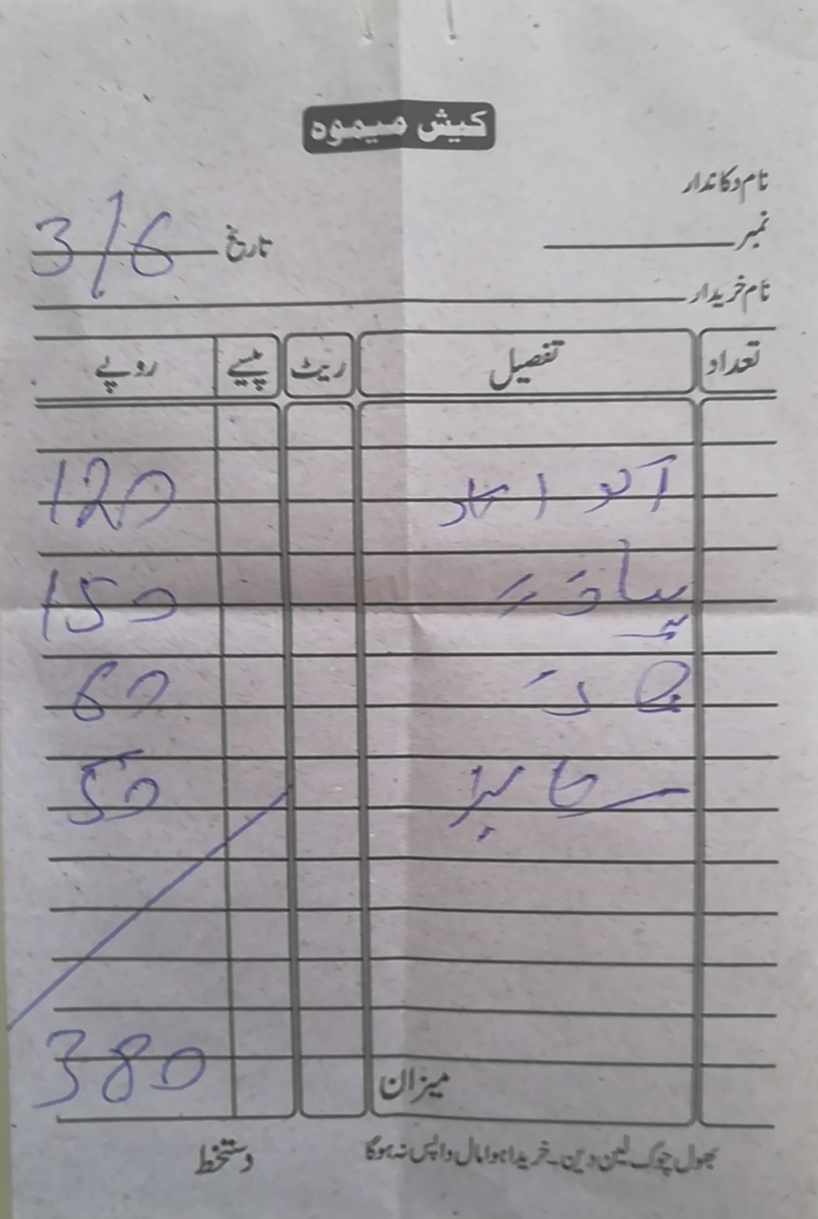 کیش میموہ
نام دکاندار
نمبر
تاریخ 3/6
نام خریدار
تعداد تفصیل ریٹ پیسے روپے
آلو 120
150
60
50
میزان 380
بھول چوک لین دین۔خریدا ہوا مال واپس نہ ہوگا دستخط